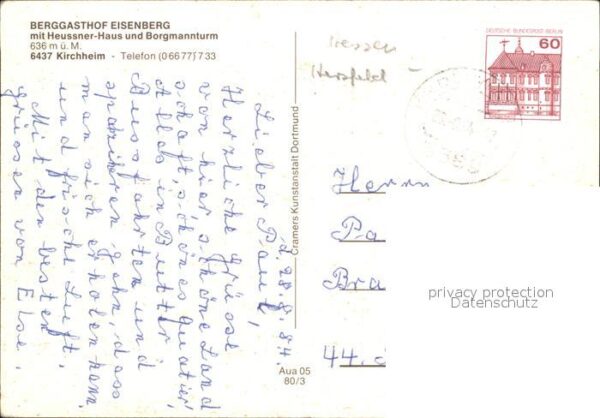 BERGGASTHOF EISENBERG
mit Heussner-Haus und Borgmannturm
636 m ü. M.
6437 Kirchheim - Telefon (0 66 77) 7 33
d. 28. 84.
Lieber Paul,
Herzliche Grüsse
von hier, schöne Land
schaft, schönes Quatier,
Alles in Butter
Bussfahrten und
spazieren gehn, dass
man sich erholen kann.
und frische Luft.
Mit den besten
Grüssen von Else.
Cramers Kunstanstalt Dortmund
Aua 05
80/3
Hessen
Hersfeld
DEUTSCHE BUNDESPOST BERLIN
60
Herrn
Pa
Bra
44.
privacy protection
Datenschutz